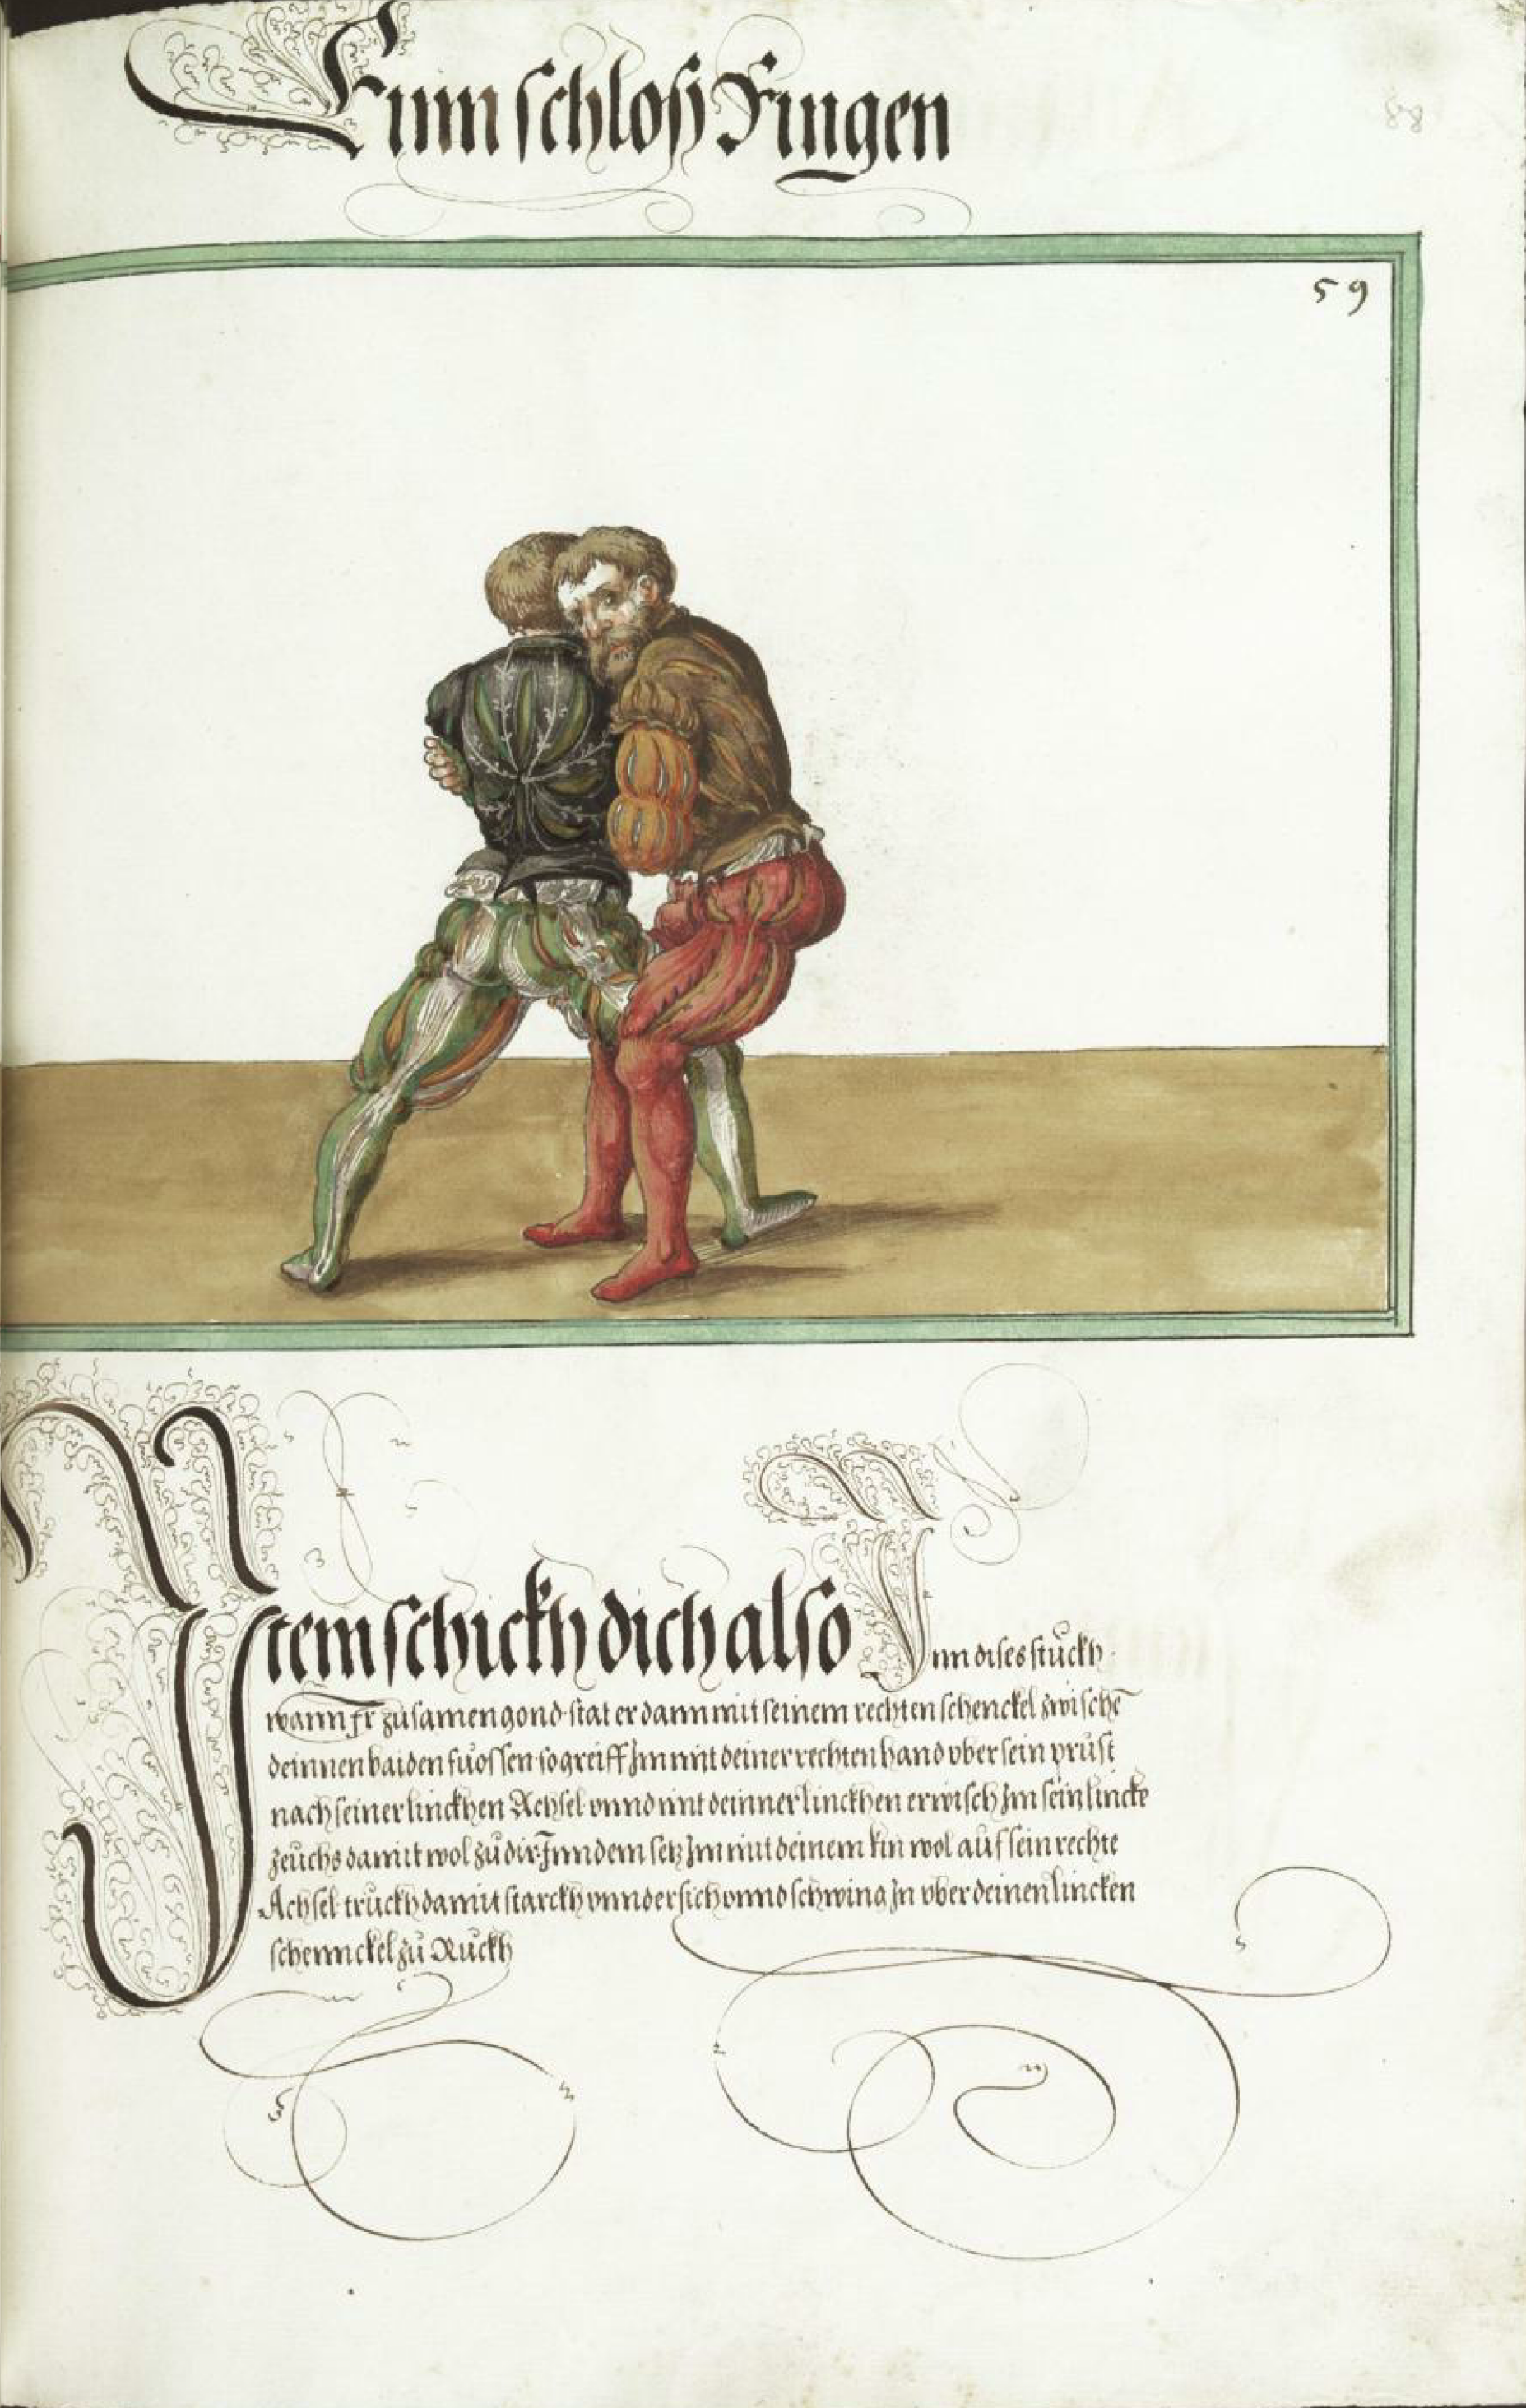 Ein schloß Ringen
59
Item schickh dich also Inn dises stuckh.
wann Ir zusamen gond. stat er dann mit seinem rechten schenckel zwischē
deinnen baiden fuossen. so greiff Im mit deiner rechten hand vber sein prust
nach seiner linckhen Achsel vnnd mit deinner linckhen erwisch Im sein lincke
zeuchs damit wol zu dir. Inn dem setz Im mit deinem kin wol auf sein rechte
Achsel truckh damit starckh vnnder sich vnnd schwing In vber deinen lincken
schennckel zu Ruckh